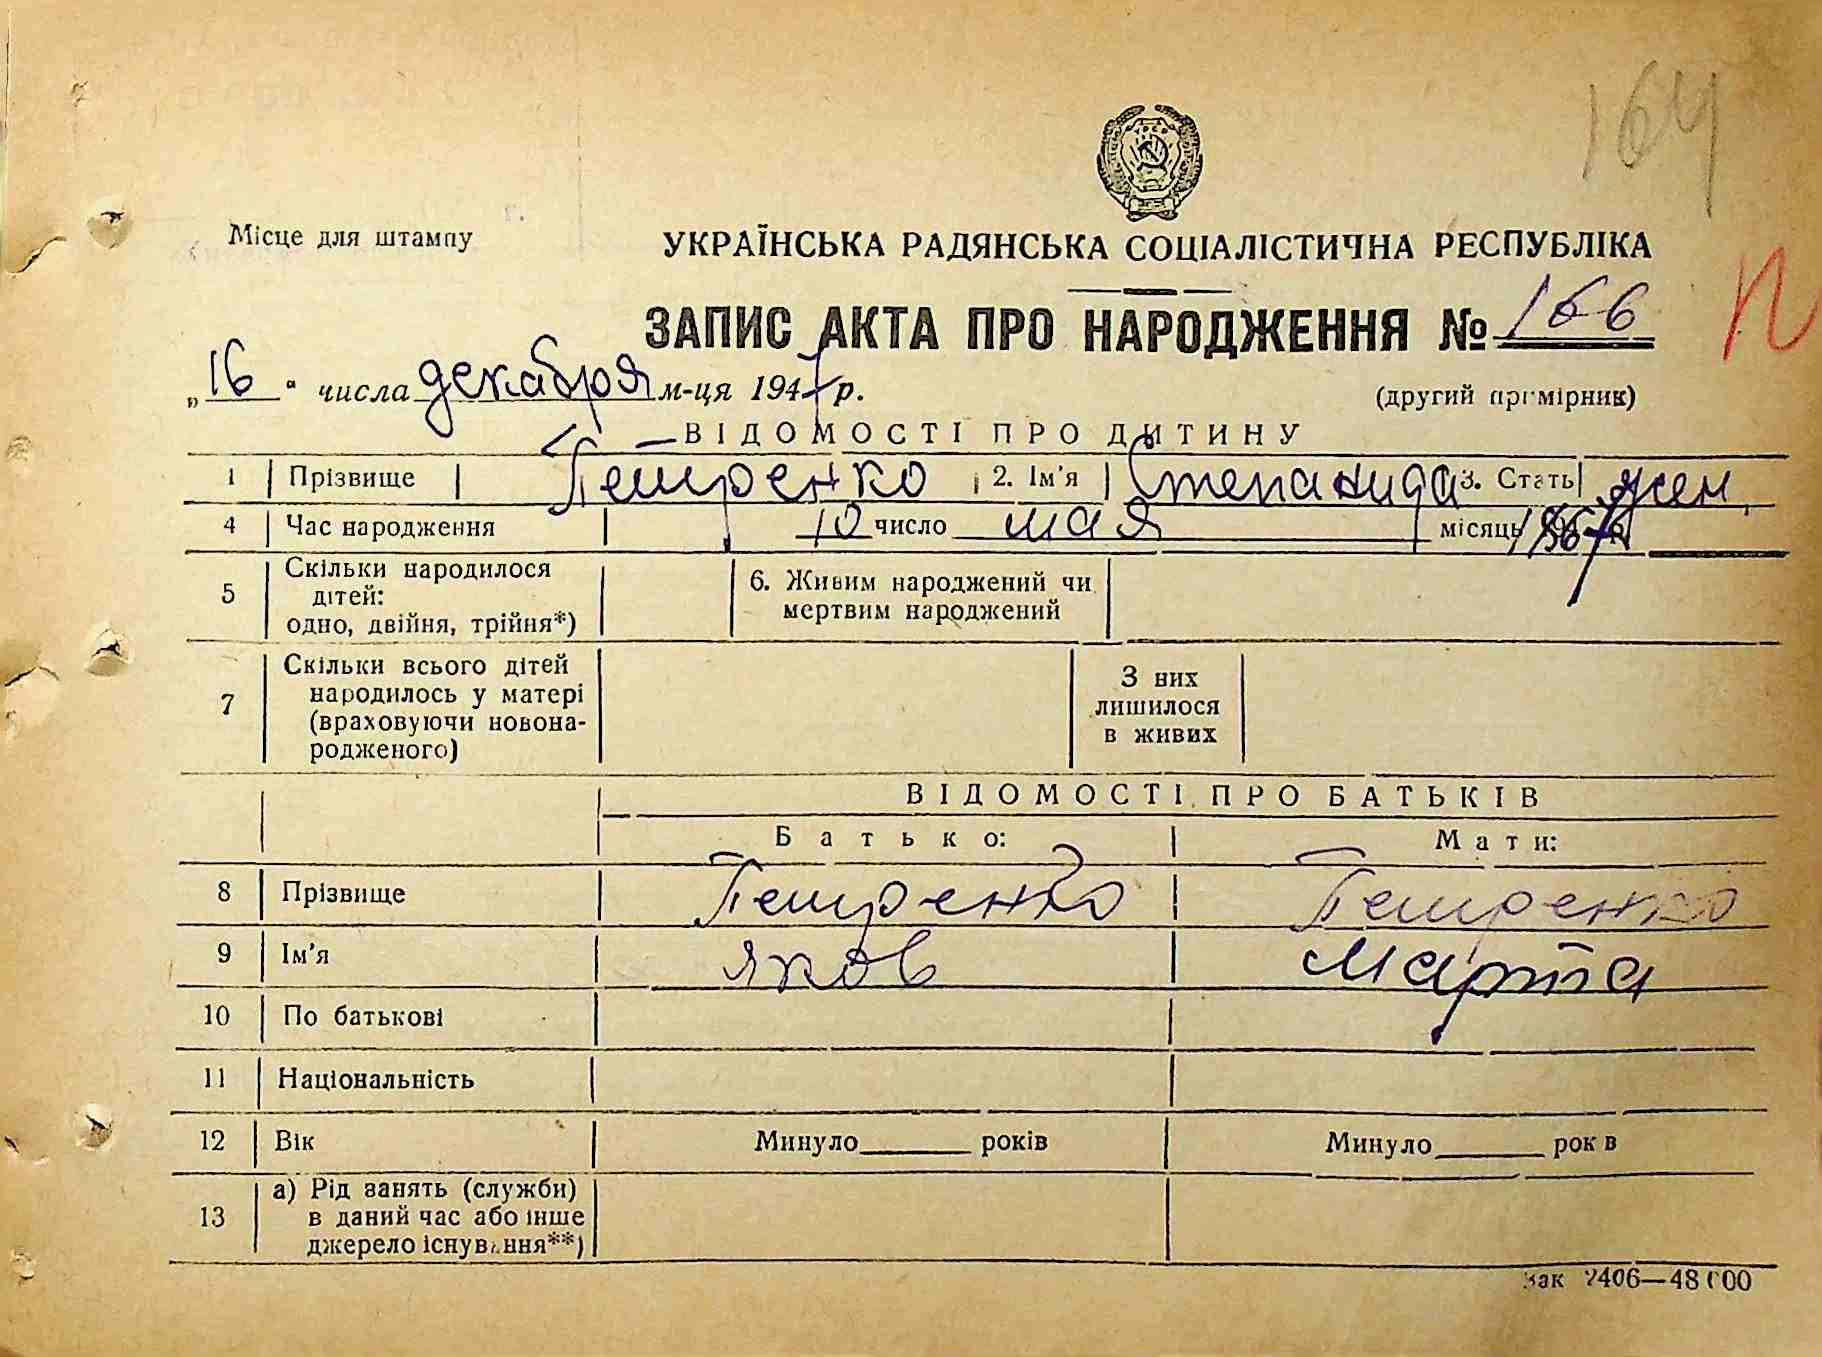 164
Місце для штампу
УКРАЇНСЬКА РАДЯНСЬКА СОЦІАЛІСТИЧНА РЕСПУБЛІКА
ЗАПИС АКТА ПРО НАРОДЖЕННЯ № 166
П
„16“ числа декабря м-ця 1947 р.
(другий примірник)
ВІДОМОСТІ ПРО ДИТИНУ
1 Прізвище Петренко 2. Ім'я Степанида 3. Стать жен
4 Час народження 10 число мая місяць р.
5 Скільки народилося дітей: одно, двійня, трійня*) 6. Живим народжений чи мертвим народжений
7 Скільки всього дітей народилось у матері (враховуючи новона-родженого) З них лишилося в живих
ВІДОМОСТІ ПРО БАТЬКІВ
Батько: Мати:
8 Прізвище Петренко Петренко
9 Ім'я Яков Марта
10 По батькові
11 Національність
12 Вік Минуло років Минуло рок в
13 а) Рід занять (служби) в даний час або інше джерело існування**)
Зак 2406—48000